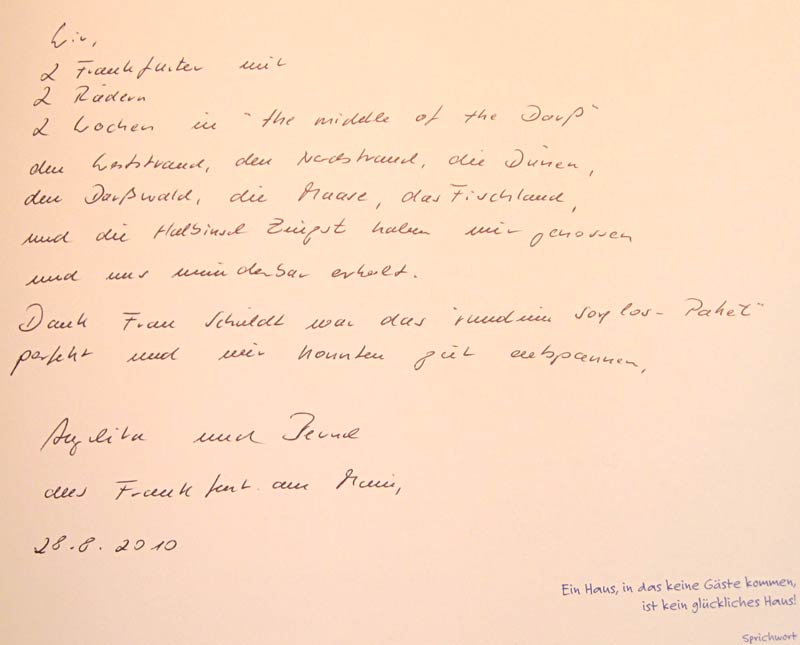 Wir,
2 Frankfurter mit
2 Rädern
2 Wochen in "the middle of the Darß"
den Weststrand, den Nordstrand, die Dünen,
den Darßwald, die Maase, das Fischland,
und die Halbinsel Zingst haben wir genossen
und uns wunderbar erholt.
Dank Frau Schuldt war das "rundum sorglos-Paket"
perfekt und wir konnten gut entspannen,
Angelika und Bernd
aus Frankfurt am Main,
28.8.2010
Ein Haus, in das keine Gäste kommen,
ist kein glückliches Haus!
Sprichwort